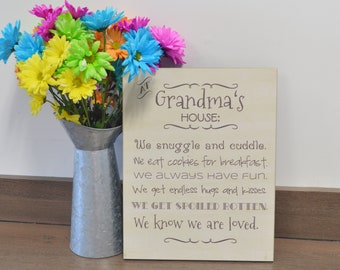 AT
Grandma's
HOUSE:
We snuggle and cuddle.
We eat cookies for breakfast.
WE ALWAYS HAVE FUN.
We get endless hugs and kisses.
WE GET SPOILED ROTTEN.
We know we are loved.